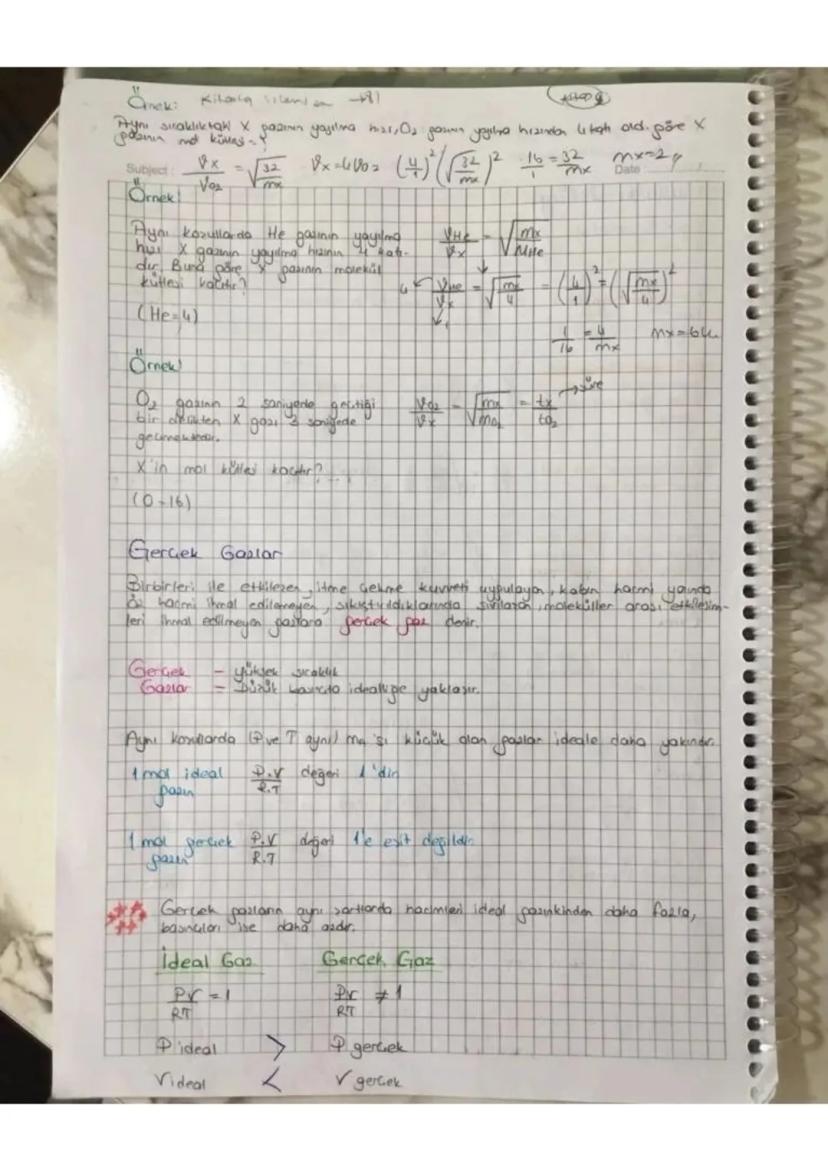 Örnek:
Aynı sıcaklıktaki X gazının yayılma hızı, O2 gazının yayılma hızından 4 katı old. göre X
gazının mol kütlesi = ?
Subject: Vx/VO2 = √32/mx Vx=4VO2 (4/1)² (√32/mx)² 16/1 = 32/mx mx=2g Date:
Örnek!
Aynı koşullarda He gazının yayılma
hızı X gazının yayılma hızının 4 katı-
dır. Buna göre X gazının molekül
kütlesi kaçtır?
(He=4)
VHe/Vx = √mx/MHe
4 VHe/Vx = √mx/4 = (4/1)² = (√mx/4)²
1
1/16 = 4/mx mx=64
Örnek!
O2 gazının 2 saniyede geçtiği
bir delikten X gazı 3 saniyede
geçmektedir.
X'in mol kütlesi kaçtır?
(O-16)
VO2/Vx = √mx/mO2 = tx/tO2 → süre
Gerçek Gazlar
Birbirleri ile etkileşen, itme çekme kuvveti uygulayan, kabın hacmi yanında
öz hacmi ihmal edilemeyen, sıkıştırıldıklarında sıvılaşan, moleküller arası etkileşim-
leri ihmal edilmeyen gazlara gerçek gaz denir.
Gerçek - yüksek sıcaklık
Gazlar - Düşük basınçta idealliğe yaklaşır.
Aynı koşullarda (P ve T aynı) ma'sı küçük olan gazlar ideale daha yakındır.
1 mol ideal P.V/R.T değeri 1'dir
gazın
1 mol gerçek P.V/R.T değeri 1'e eşit değildir.
gazın
Gerçek gazların aynı şartlarda hacimleri ideal gazınkinden daha fazla,
basınçları ise daha azdır.
İdeal Gaz Gerçek Gaz
PV/RT = 1 PV/RT ≠ 1
P ideal > P gerçek
V ideal < V gerçek